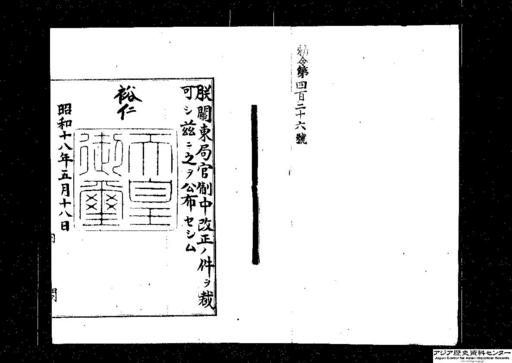 勅令第四百二十六號
朕關東局官制中改正ノ件ヲ裁
可シ茲ニ之ヲ公布セシム
裕仁
天皇御璽
昭和十八年五月十八日
アジア歴史資料センター
Japan Center for Asian Historical Records